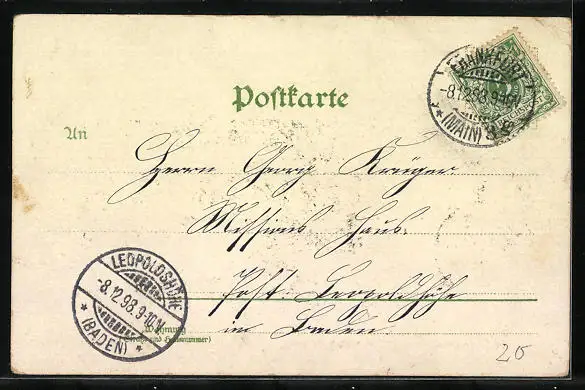 Postkarte
FRANKFURT
-8.12.98.9-10N.
* (MAIN) *
An
Herrn Georg Krüger
Missions Haus.
LEOPOLDSHÖHE
-8.12.98.9-10N.
* (BADEN) *
Post: Leopoldshöhe
Wohnung
(Straße und Hausnummer)
in Baden.
20